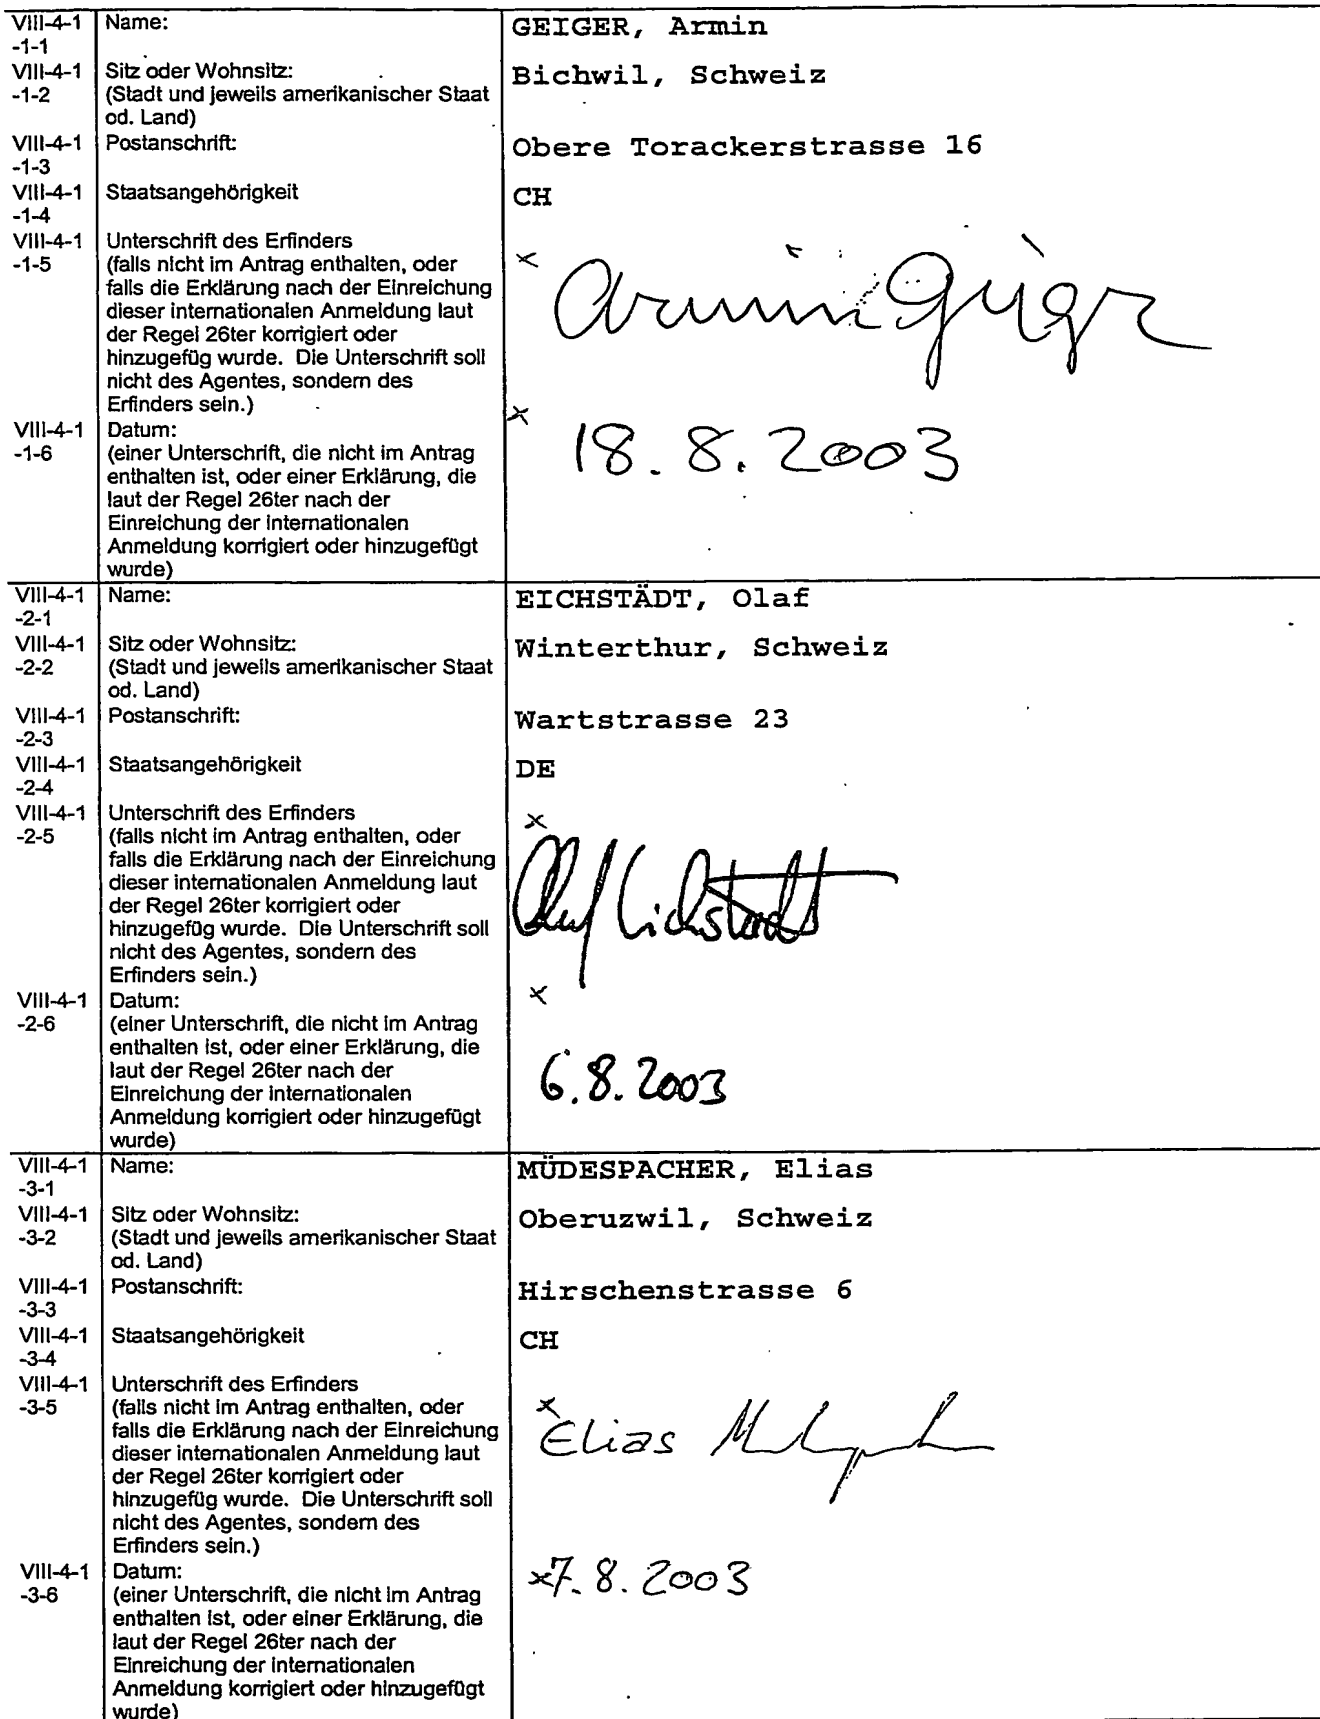 VIII-4-1 Name: GEIGER, Armin
-1-1
VIII-4-1 Sitz oder Wohnsitz: Bichwil, Schweiz
-1-2 (Stadt und jeweils amerikanischer Staat
od. Land)
VIII-4-1 Postanschrift: Obere Torackerstrasse 16
-1-3
VIII-4-1 Staatsangehörigkeit CH
-1-4
VIII-4-1 Unterschrift des Erfinders
-1-5 (falls nicht im Antrag enthalten, oder
falls die Erklärung nach der Einreichung
dieser internationalen Anmeldung laut
der Regel 26ter korrigiert oder
hinzugefüg wurde. Die Unterschrift soll
nicht des Agentes, sondern des
Erfinders sein.)
x Armin Geiger
VIII-4-1 Datum: x 18.8.2003
-1-6 (einer Unterschrift, die nicht im Antrag
enthalten ist, oder einer Erklärung, die
laut der Regel 26ter nach der
Einreichung der internationalen
Anmeldung korrigiert oder hinzugefügt
wurde)
VIII-4-1 Name: EICHSTÄDT, Olaf
-2-1
VIII-4-1 Sitz oder Wohnsitz: Winterthur, Schweiz
-2-2 (Stadt und jeweils amerikanischer Staat
od. Land)
VIII-4-1 Postanschrift: Wartstrasse 23
-2-3
VIII-4-1 Staatsangehörigkeit DE
-2-4
VIII-4-1 Unterschrift des Erfinders
-2-5 (falls nicht im Antrag enthalten, oder
falls die Erklärung nach der Einreichung
dieser internationalen Anmeldung laut
der Regel 26ter korrigiert oder
hinzugefüg wurde. Die Unterschrift soll
nicht des Agentes, sondern des
Erfinders sein.)
x Olaf Eichstädt
VIII-4-1 Datum: x 6.8.2003
-2-6 (einer Unterschrift, die nicht im Antrag
enthalten ist, oder einer Erklärung, die
laut der Regel 26ter nach der
Einreichung der internationalen
Anmeldung korrigiert oder hinzugefügt
wurde)
VIII-4-1 Name: MÜDESPACHER, Elias
-3-1
VIII-4-1 Sitz oder Wohnsitz: Oberuzwil, Schweiz
-3-2 (Stadt und jeweils amerikanischer Staat
od. Land)
VIII-4-1 Postanschrift: Hirschenstrasse 6
-3-3
VIII-4-1 Staatsangehörigkeit CH
-3-4
VIII-4-1 Unterschrift des Erfinders
-3-5 (falls nicht im Antrag enthalten, oder
falls die Erklärung nach der Einreichung
dieser internationalen Anmeldung laut
der Regel 26ter korrigiert oder
hinzugefüg wurde. Die Unterschrift soll
nicht des Agentes, sondern des
Erfinders sein.)
x Elias
VIII-4-1 Datum: x 7.8.2003
-3-6 (einer Unterschrift, die nicht im Antrag
enthalten ist, oder einer Erklärung, die
laut der Regel 26ter nach der
Einreichung der internationalen
Anmeldung korrigiert oder hinzugefügt
wurde)